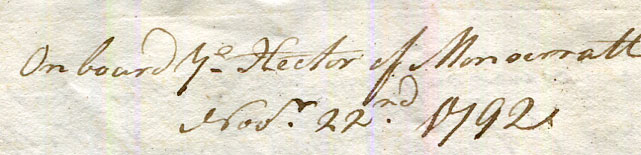 On board yᵉ Hector of Monserratt
Novʳ. 22ⁿᵈ. 1792